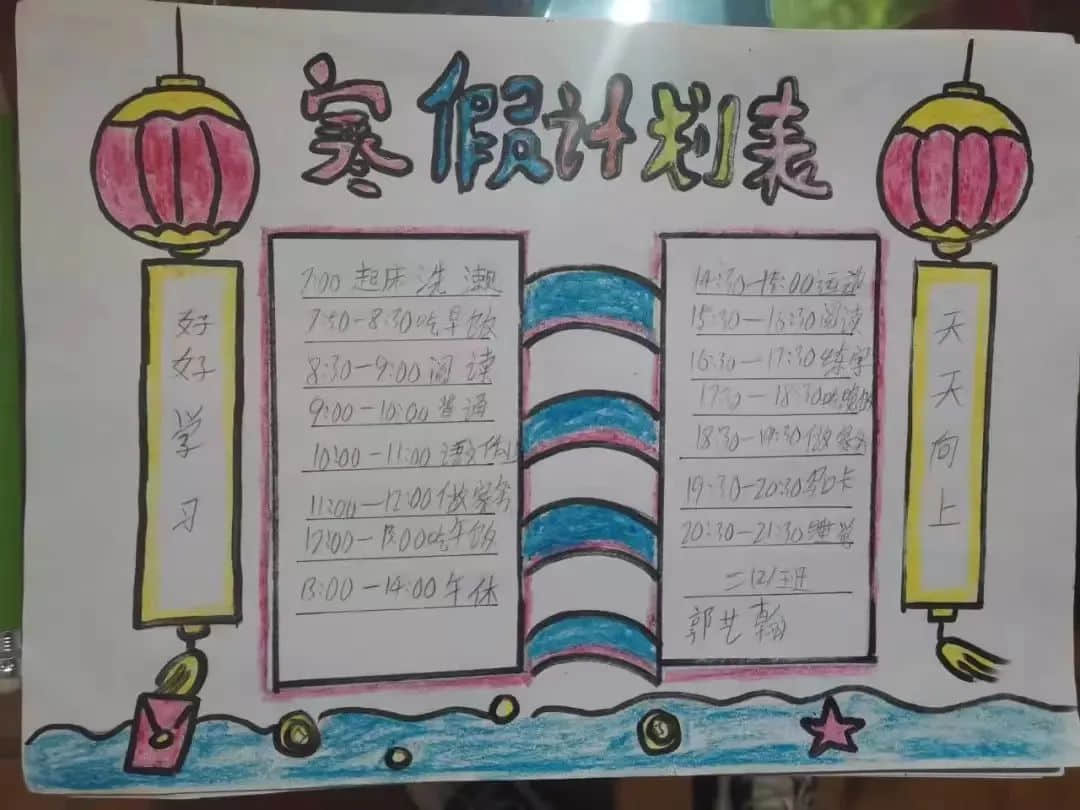 寒假计划表
好好学习
7:00 起床洗濑
7:50-8:30吃早饭
8:30-9:00 阅读
9:00-10:00 普通
10:00-11:00 语作业
11:00-12:00 做家务
12:00-13:00吃午饭
13:00-14:00 午休
14:30-15:00运动
15:30-16:30阅读
16:30-17:30练字
18:30吃晚饭
18:30-19:30做家务
19:30-20:30打卡
20:30-21:30睡觉
二(2)班
郭艺翰
天天向上